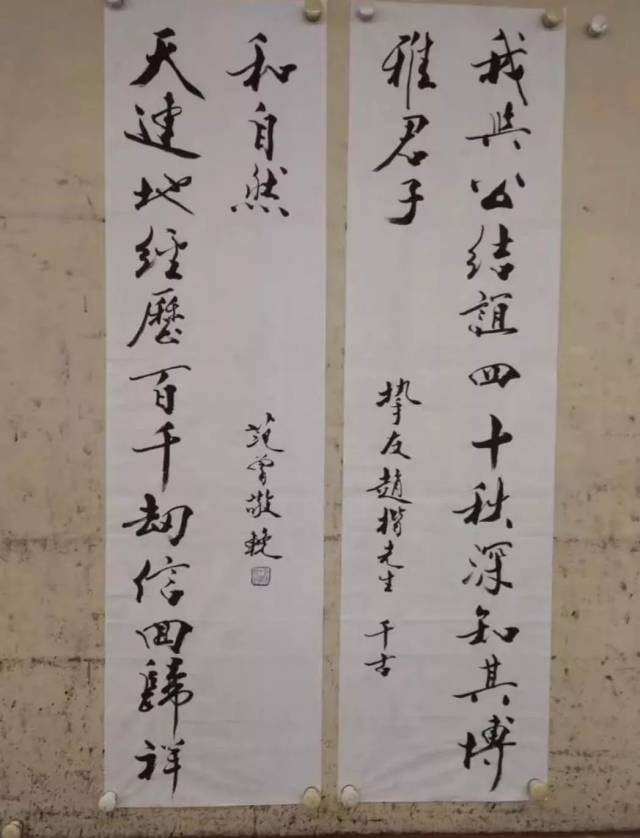 我與公結誼四十秋深知其博
雅君子
挚友趙楷先生 千古
天連地經歷百千劫信回歸祥
和自然
范曾敬輓